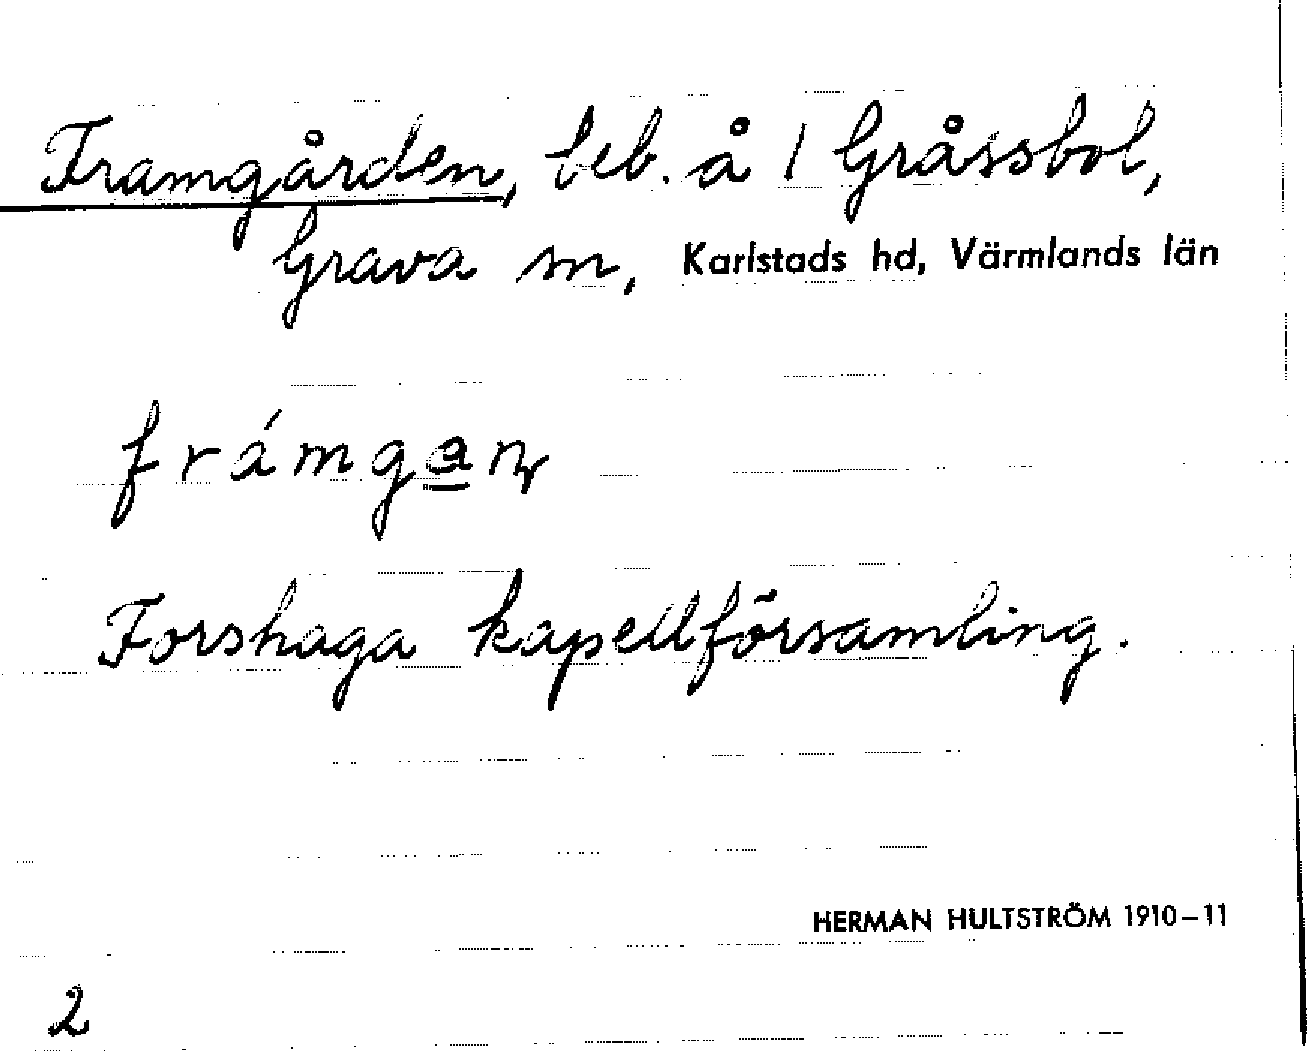 Framgården, beb. å 1 Gråssbol,
Grava sn, Karlstads hd, Värmlands län
frámga̲ɳ
Forshaga kapellförsamling.
HERMAN HULTSTRÖM 1910–11
2